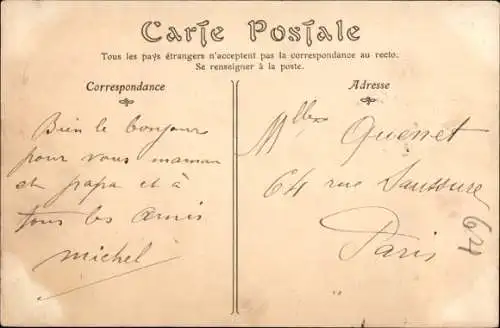 Carte Postale
Tous les pays étrangers n'acceptent pas la correspondance au recto.
Se renseigner à la poste.
Correspondance
Bien le bonjour
pour vous maman
et papa et à
tous les amis
michel
Adresse
Mlles Quesnet
64 rue Saussure
Paris
624